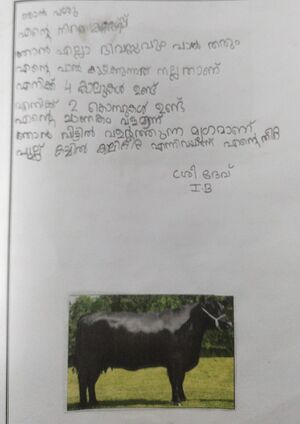 ഞാൻ പശു
എന്റെ നിറം കറുപ്പ്
ഞാൻ എല്ലാ ദിവസവും പാൽ തരും
എന്റെ പാൽ കുടിക്കുന്നത് നല്ലതാണ്
എനിക്ക് 4 കാലുകൾ ഉണ്ട്
എനിക്ക് 2 കൊമ്പുകൾ ഉണ്ട്
എന്റെ ചാണകം വളമാണ്
ഞാൻ വീട്ടിൽ വളർത്തുന്ന മൃഗമാണ്
പുല്ല് എന്നിവയാണ് എന്റെ തീറ്റ
ദേവ്
I-B